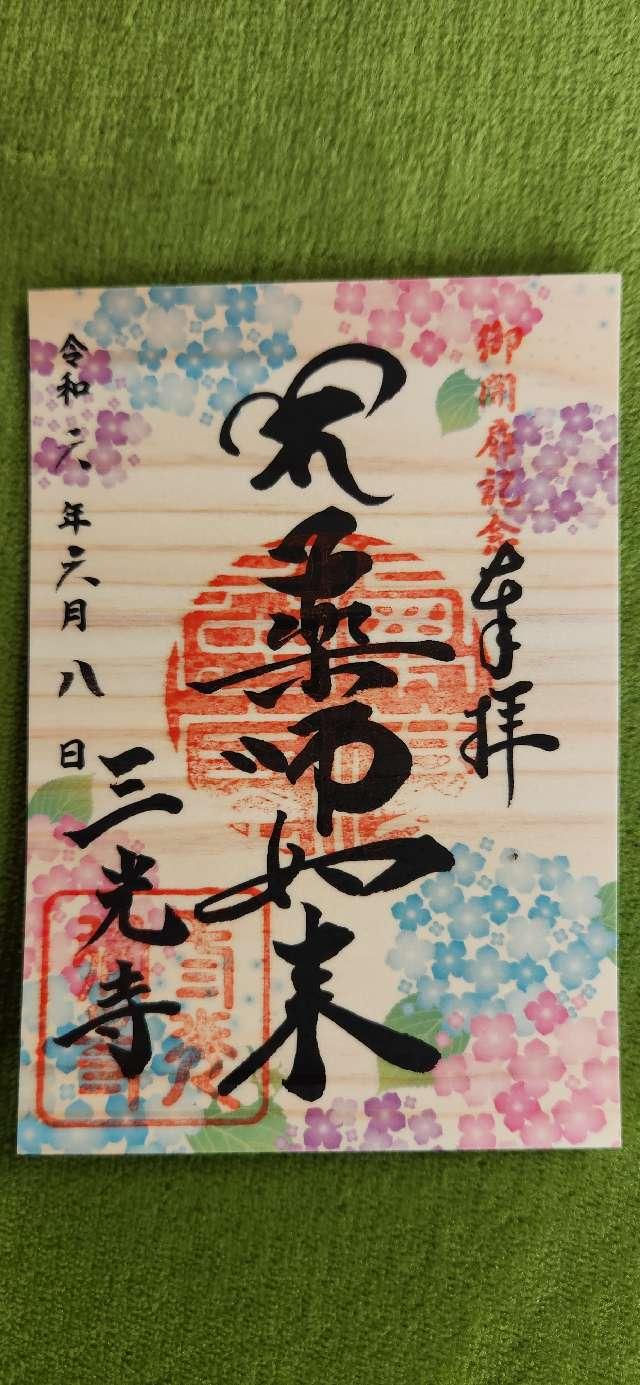 御開扉記念
奉拝
薬師如来
三光寺
令和六年六月八日